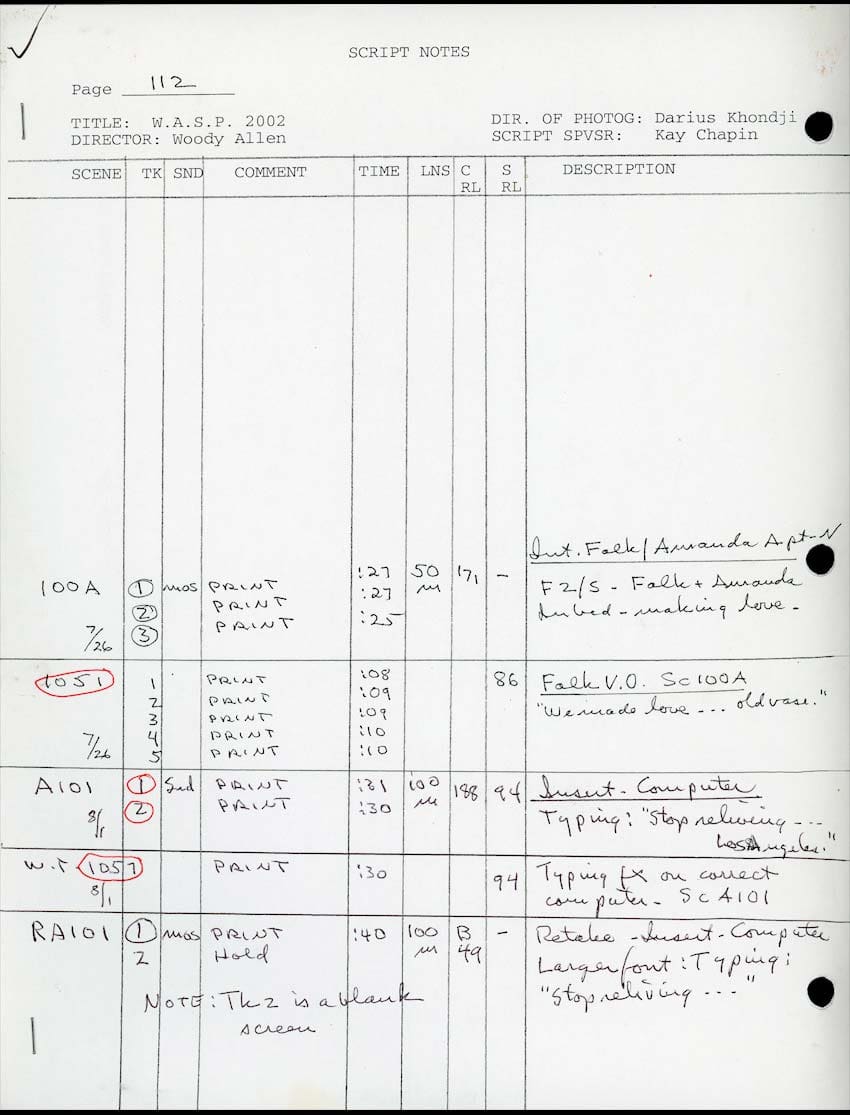 SCRIPT NOTES
Page 112
TITLE: W.A.S.P. 2002
DIR. OF PHOTOG: Darius Khondji
DIRECTOR: Woody Allen
SCRIPT SPVSR: Kay Chapin
SCENE TK SND COMMENT TIME LNS C RL S RL DESCRIPTION
Int. Falk/Amanda Apt-N
100A 1 mos PRINT :27 50 m 171 - F2/S - Falk + Amanda
2 PRINT :27 In bed - making love -
7/26 3 PRINT :25
1051 1 PRINT :08 86 Falk V.O. Sc100A
2 PRINT :09 "We made love --- old vase."
3 PRINT :09
7/26 4 PRINT :10
5 PRINT :10
A101 1 Snd PRINT :31 100 m 188 94 Insert - Computer
8/1 2 PRINT :30 Typing: "Stop reliving ---
Los Angeles."
W.T 1057 PRINT :30 94 Typing fx on correct
8/1 computer - Sc A101
RA101 1 mos PRINT :40 100 m B 49 - Retake - Insert - Computer
2 Hold Larger font: Typing:
"Stop reliving ---"
NOTE: Tk 2 is a blank
screen